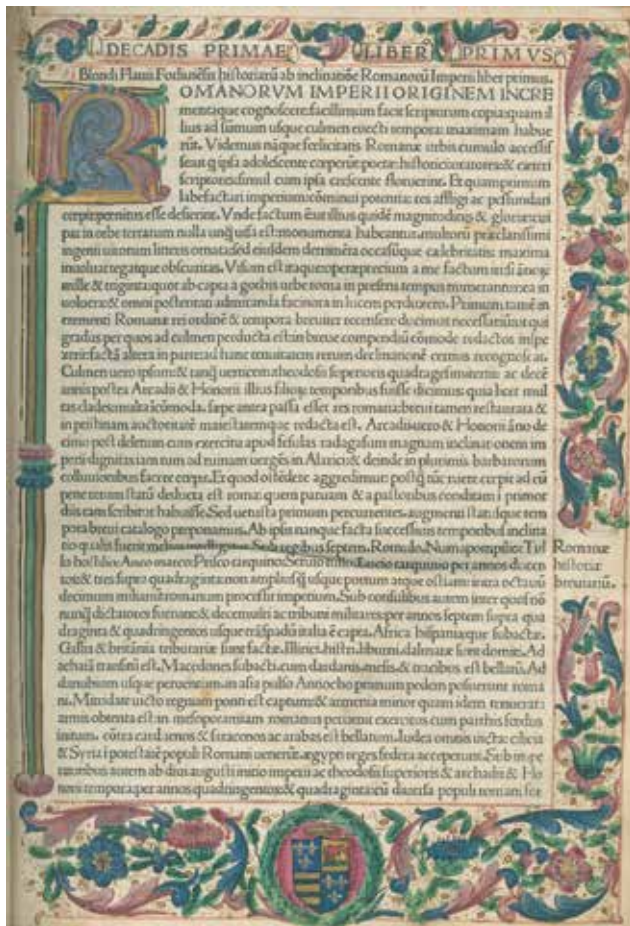 DECADIS PRIMAE LIBER PRIMVS
Blondi Flauii Forliuiẽsis historiarũ ab inclinatiõe Romanorũ Imperii liber primus.
ROMANORVM IMPERII ORIGINEM INCRE
mentaque cognoscere facillimum facit scriptorum copia: quam il
lius ad summum usque culmen euecti tempora maximam habue
rũt. Videmus nãque fœlicitatis Romanæ urbis cumulo accessis
se ut ipsa adolescente poetæ: historici: oratores: & cæteri
scriptores: simul cum ipsa crescente floruerint. Et quamprimum
labefactari imperium: cõminui potentia: res affligi ac pessundari
cœpit: penitus esse desierint. Vnde factum ẽ ut illius quidẽ magnitudinis & gloriæ: cui
par in orbe terrarum nulla unq̃ uisa est: monumenta habeantur: multorũ præclarissimi
ingenii uirorum litteris ornata: sed eiusdem occasusque celebritatis: maxima
inuoluat tegatque obscuritas. Visum est itaque operæprecium a me factum iri: si ãnoꝝ
mille & triginta: quot ab capta a gothis urbe roma in præsens tempus numerantur: ea in
& omni posteritati admiranda facinora in lucem perduxero. Primum tamẽ in
Romanæ rei ordinẽ & tempora breuiter recensere ducimus necessariũ: ut qui
gradus per quos ad culmen perducta est: in breue compendiũ cõmode redactos inspe
xerit: altera in parte ad hanc tenuitatem rerum declinationẽ cernus recognoscat.
Culmen uero ipsum: & tanq̃ uerticem theodosii superioris quadragesimotertio: ac decẽ
annis postea Arcadii & Honorii illius filioꝝ temporibus fuisse dicimus: qua licet mul
tas clades: multa ĩcõmoda: sæpe antea passa esset res romana: breui tamen restaurata &
in pristinam auctoritatẽ maiestatemque redacta est. Arcadii uero & Honorii ãno de
cimo post deletum cum exercitu apud fesulas radagasum magnam inclinationem im
perii dignitas iam tum ad ruinam uergẽs in Alarico: & deinde in plurimis barbarorum
colluuionibus facere cœpit. Et quod ostẽdere aggredimur: postq̃ nũc ruere cœpit ad eũ
pene rerum statũ deducta est roma: quem paruam & a pastoribus conditam ĩ primor
diis eam scribitur habuisse. Sed uetusta primum percurrentes: augmenti status que tem
pora breui catalogo preponamus. Ab ipsis nanque facta successium temporibus inclina
tio qualis fuerit melius Sub regibus septem. Romulo. Numa pompilio: Tul
lo hostilio: Anco marco: Prisco tarquino: Seruio tullio: Lucio tarquinio per annos ducen
tos: & tres supra quadraginta: non amplius q̃ usque portum atque ostiam: intra octauũ
decimum miliariũ romanum processit imperium. Sub consulibus autem inter quos nõ
nunq̃ dictatores fuerunt: & decemuiri ac tribuni militares: per annos septem supra qua
draginta & quadringentos usque trãspadũ italia ẽ capta. Africa hispaniaque subactæ.
Gallia & britãnia tributariæ sunt factæ. Illirici: histri: liburni: dalmatæ sunt domiti. Ad
achaiã transitũ est. Macedones subacti: cum dardanis: mesis: & tracibus est bellatũ. Ad
danubium usque peruentum: in asia pulso Antiocho primum pedem posuerunt roma
ni. Mitridate uicto regnum ponti est captum: & armenia minor quam idem tenuerat:
armis obtenta est: in mesopotamiam romanus peruenit exercitus cum parthis fœdus
initum. cõtra carduenos & saracenos ac arabas est bellatum. Iudea omnis uicta: cilicia
& Syria ĩ potestatẽ populi Romani uenerũt. ægypti reges federa acceperunt. Sub impe
ratoribus autem ab diui augusti initio imperii ac theodosii superioris & archadii & Ho
norii tempora: per annos quadringentos: & quadraginta: cũ diuersa populi romani for
Romanæ
historiæ
breuiariũ.